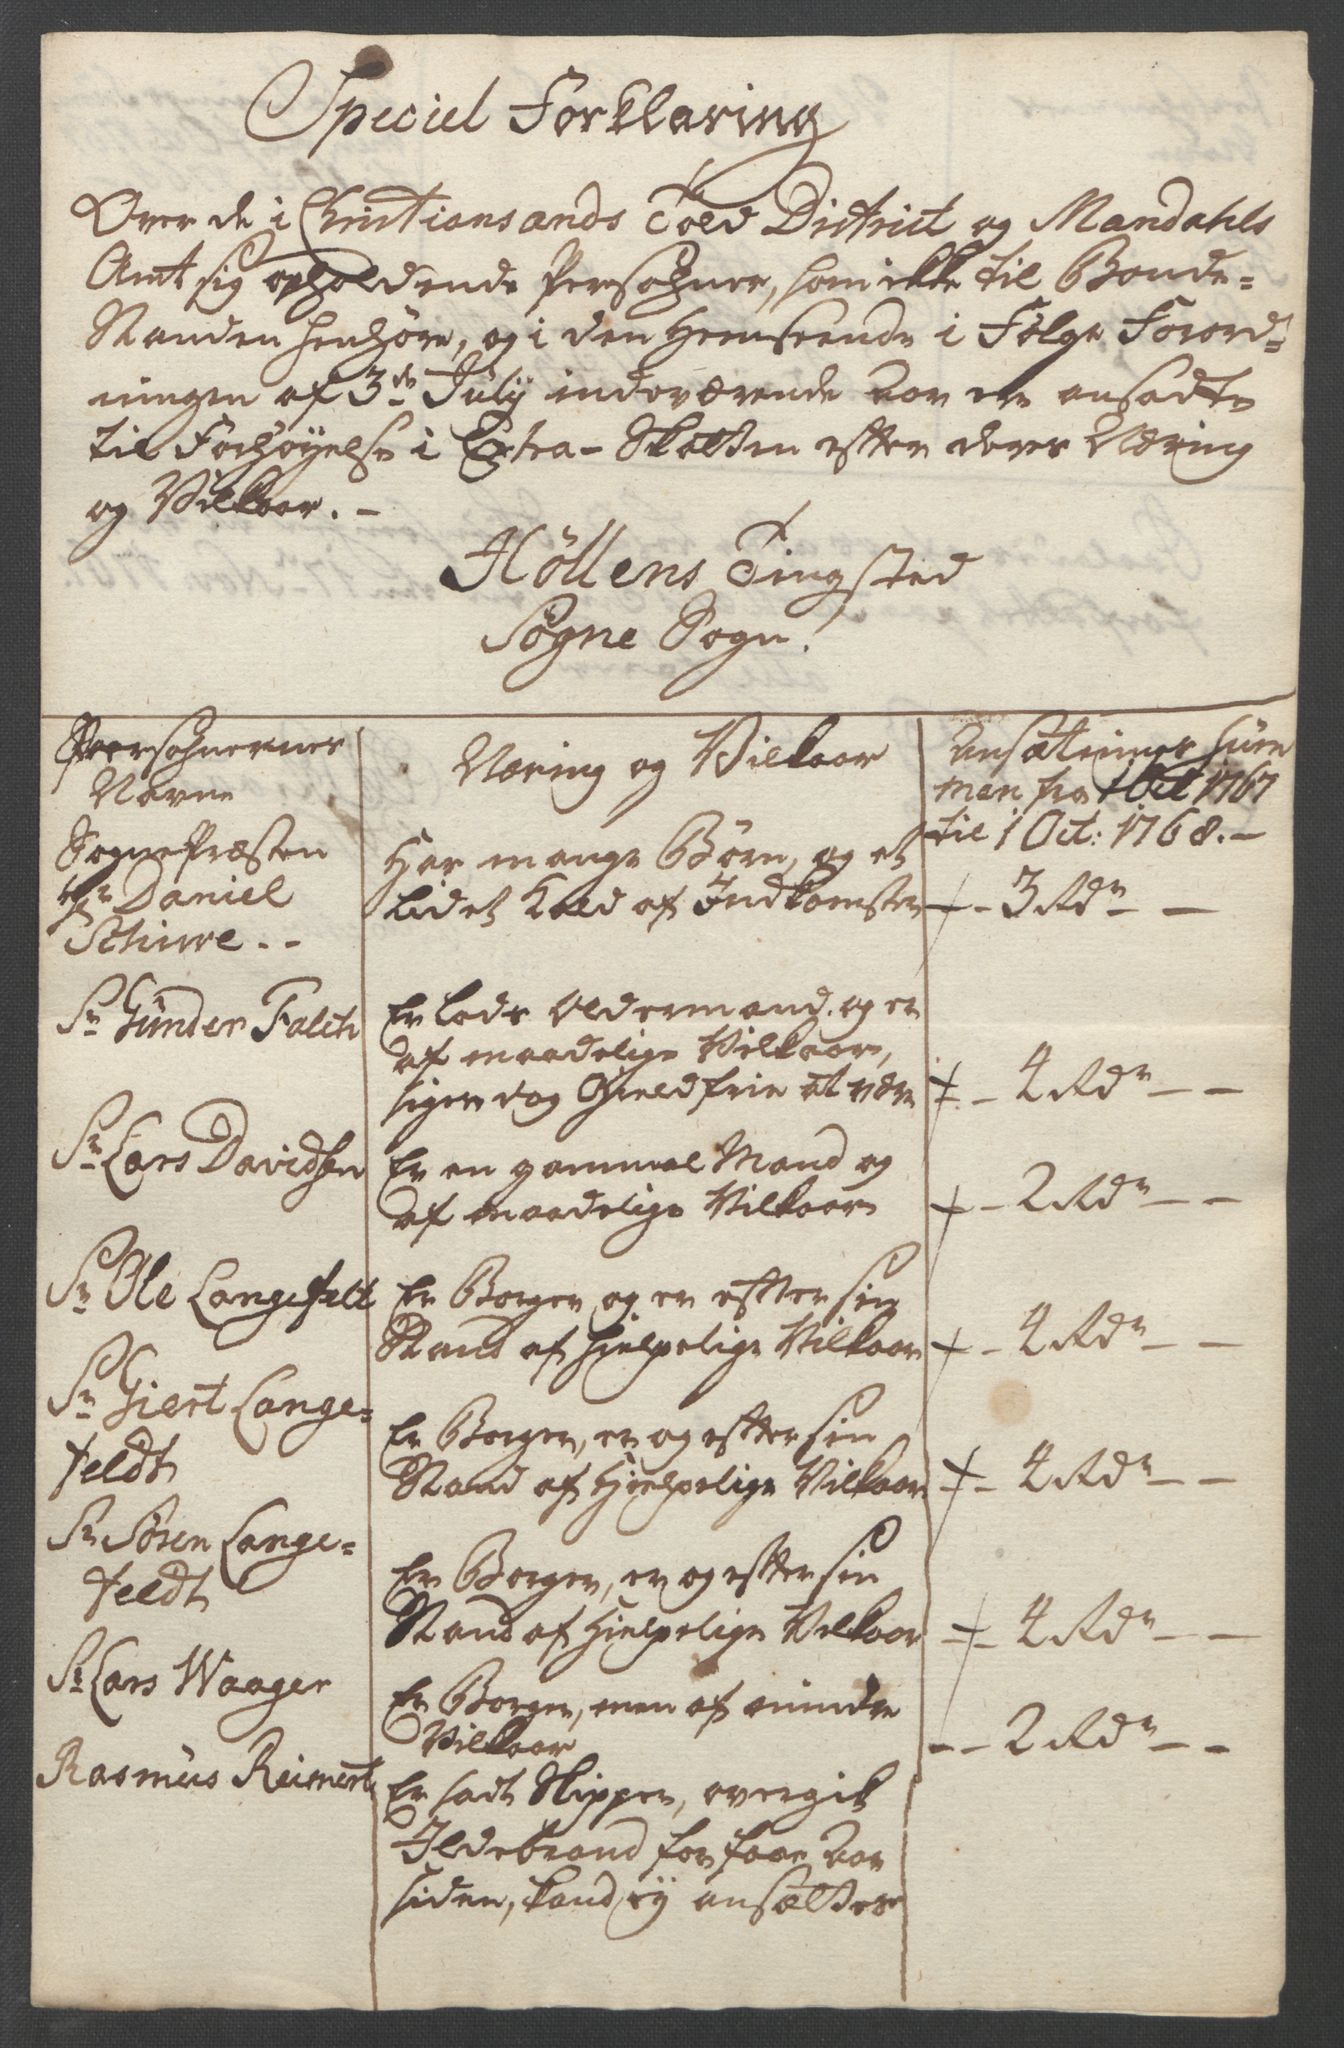 Speciel Forklaring
Over de i Christiansands Told District og Mandahls
Amt sig opholdende Persohner, som ikke til Bonde=
Standen henhöre, og i den Henseende i Følge Forord=
ningen af 3de July indeværende Aar ere ansadte
til Forhøyelse i Extra-Skatten efter deres Næring
og Vilkaar. -
Höllens Tingsted
Søgne Sogn.
Persohnernes
Navne
Næring og Vilkaar
Ansættelses Sum
men fra 1 Oct 1767
til 1 Oct: 1768. -
SognePræsten
Hr Daniel
Schiwe. -
Har mange Børn, og et
lidet Kald af Indkomster
- 3 Rdr - -
Sr Günder Falch
Er Lods Oldermand, og er
af maadelige Vilkaar,
siger dog Gield frie at være
- 4 Rdr - -
Sr Lars Davidsen
Er en gammel Mand og
af maadelige Vilkaar
- 2 Rdr - -
Sr Ole Langefelt
Er Borger og er efter sin
Stand af hielpelige Vilkaar
- 4 Rdr - -
Sr Giert Lange=
feldt
Er Borger, er og efter sin
Stand af Hielpelige Vilkaar
- 4 Rdr - -
Sr Sören Lange=
feldt
Er Borger, er og efter sin
Stand af Hielpelige Vilkaar
- 4 Rdr - -
Sr Lars Waager
Er Borger, men af mindre
Vilkaar
- - 2 Rdr - -
Rasmus Reimert
Er fadt Skipper, overgik
Ildebrand for faae Aar
siden, kand ey ansættes